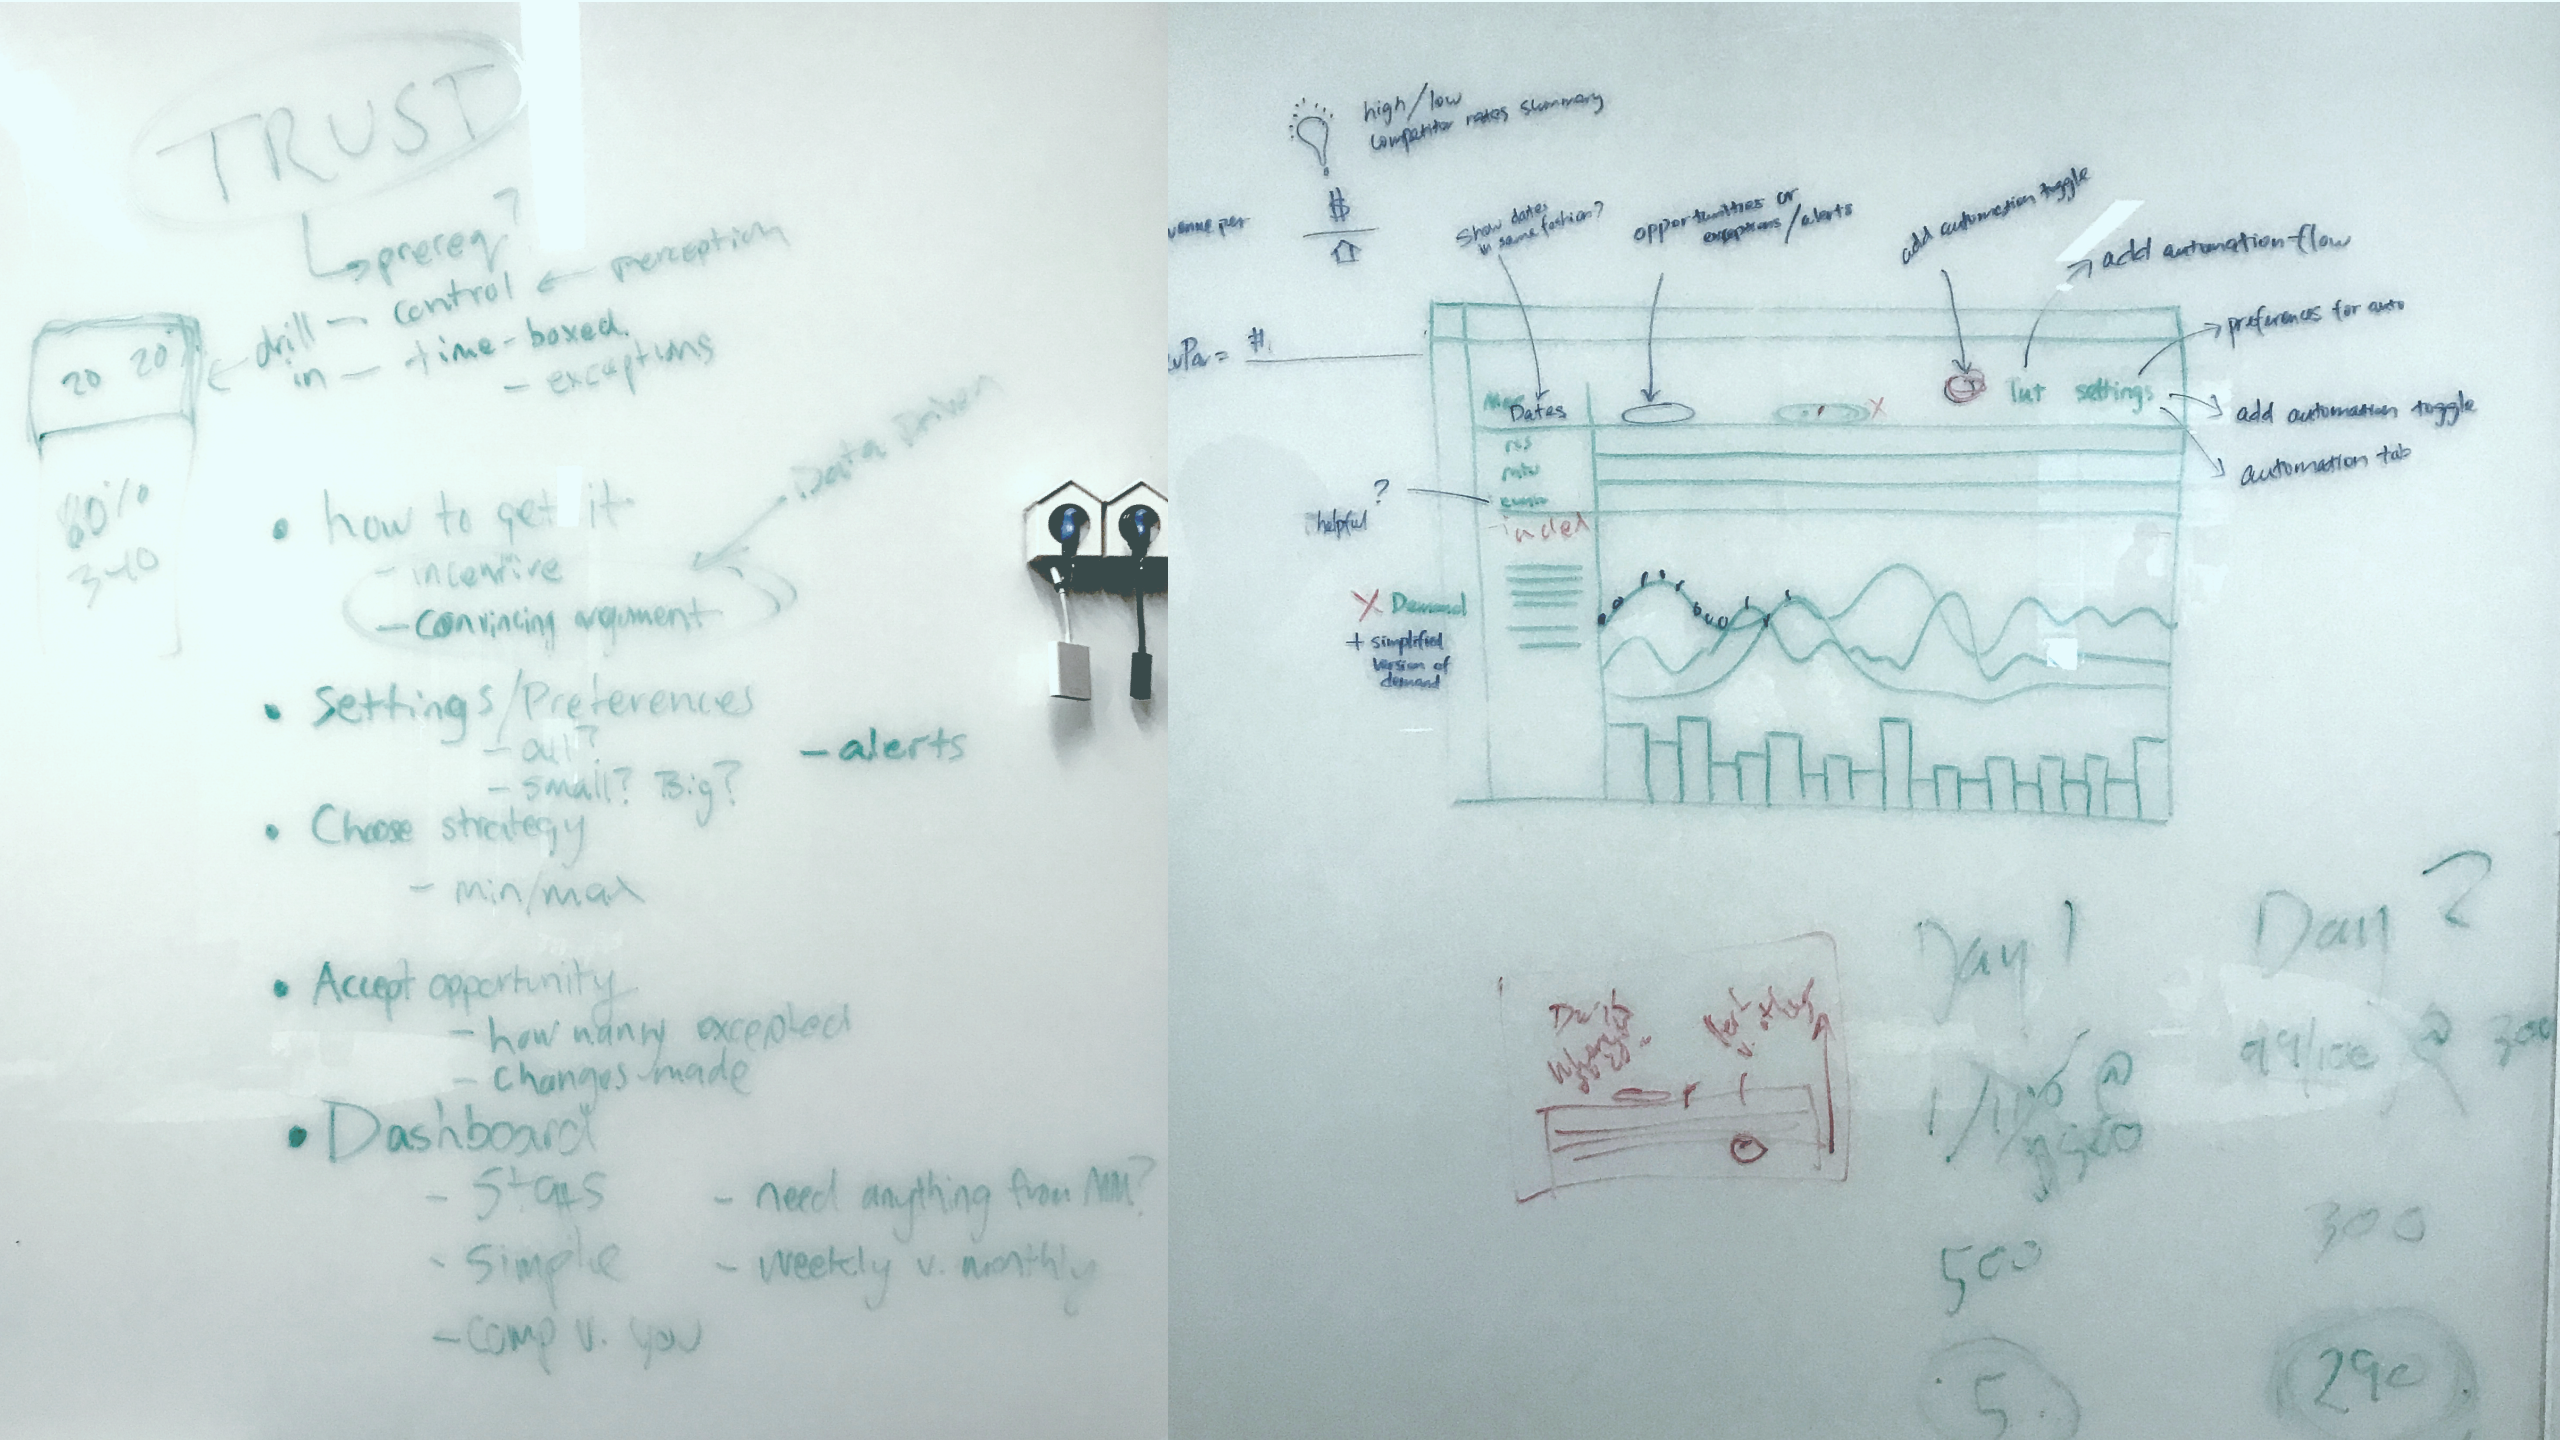 TRUST
prereq?
drill — control ← perception
in — time-boxed.
- exceptions
20 20
80%
340
Data Driven
• how to get it
- incentive
- convincing argument
• Settings/Preferences
- all?
- small? Big?
- alerts
• Choose strategy
- min/max
• Accept opportunity
- how many excepted
- changes made
• Dashboard
- Stats
- Simple
- comp v. you
- need anything from MM?
- weekly v. monthly
high/low
competitor rates summary
$
venue per
vPar = #
Show dates
in same fashion?
opportunities or
exceptions/alerts
add automation toggle
add automation flow
preferences for auto
add automation toggle
automation tab
Dates
settings
?
helpful
X Demand
+ simplified
version of
demand
Day 1
Day 2
99/100 @ 300
500
300
5
290